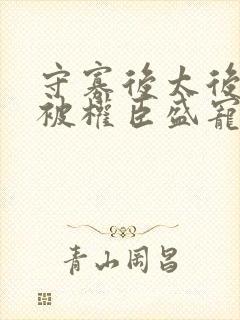 守寡後太後
被權臣盛寵
青山岡昌